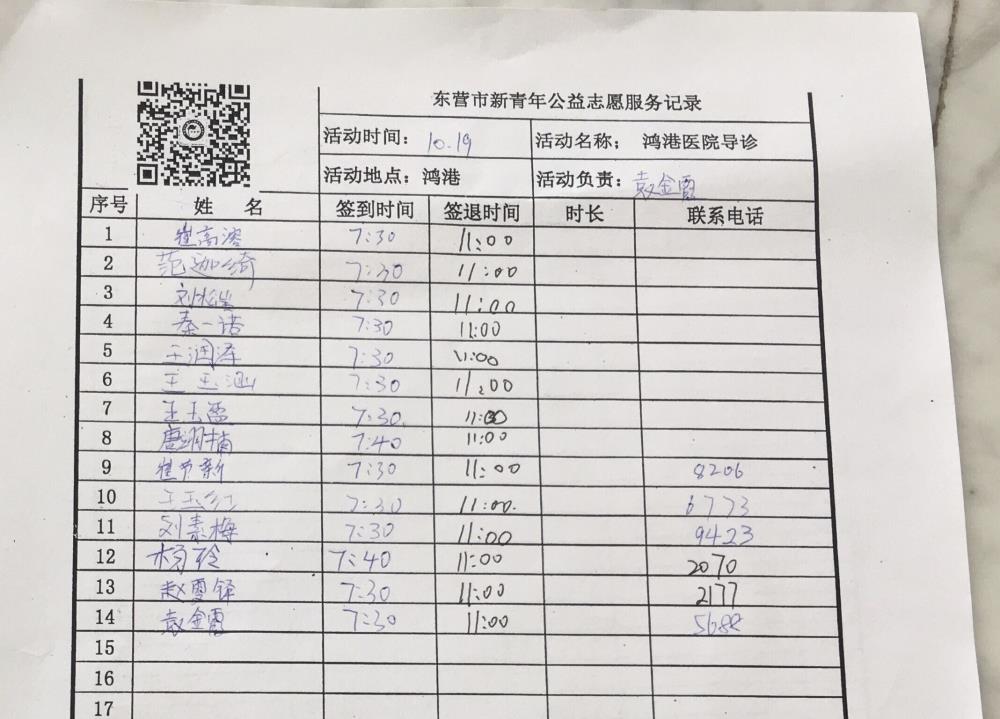 东营市新青年公益志愿服务记录
活动时间：10.19 活动名称； 鸿港医院导诊
活动地点：鸿港 活动负责：袁金霞
序号 姓 名 签到时间 签退时间 时长 联系电话
1 崔高溶 7:30 11:00
2 范迦绮 7:30 11:00
3 刘 7:30 11:00
4 秦一诺 7:30 11:00
5 王润泽 7:30 11:00
6 王玉涵 7:30 11:00
7 王玉 7:30 11:00
8 唐翊楠 7:40 11:00
9 崔节新 7:30 11:00 8206
10 王玉红 7:30 11:00. 6773
11 刘素梅 7:30 11:00 9423
12 杨玲 7:40 11:00 2070
13 赵雪铎 7:30 11:00 2177
14 袁金霞 7:30 11:00 5688
15
16
17